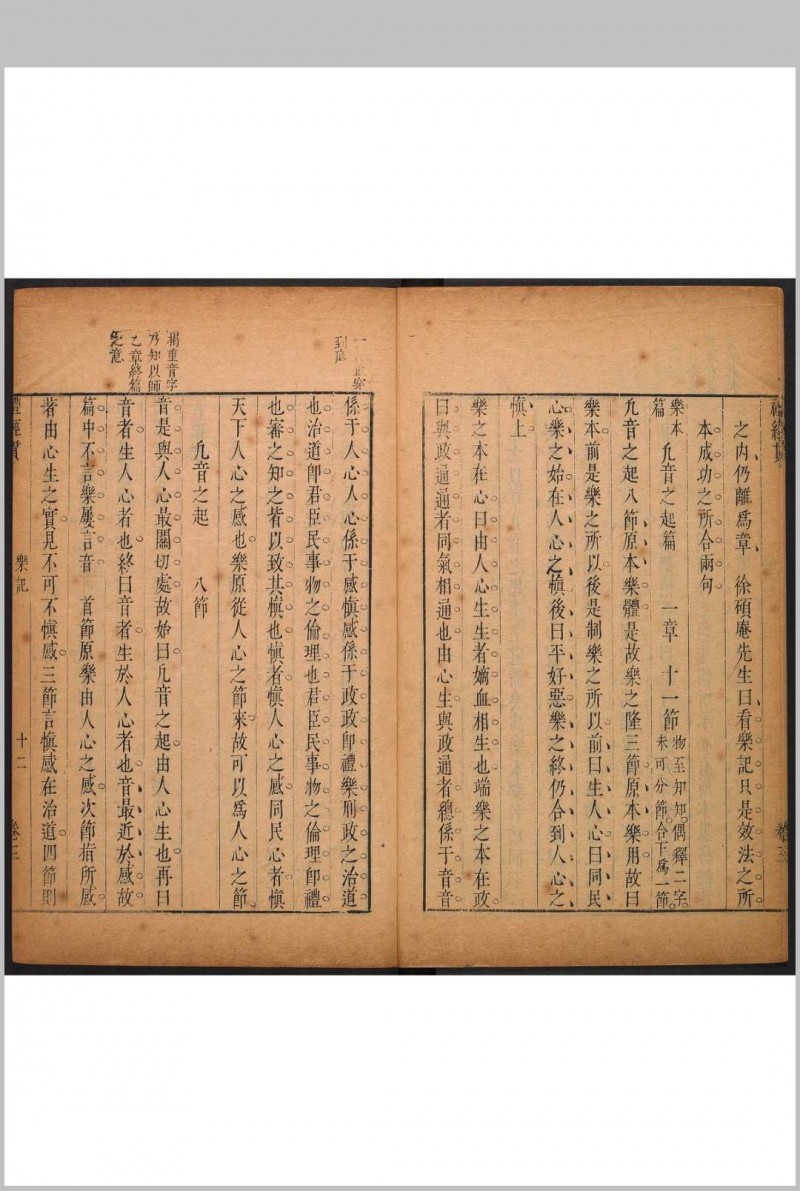 之內仍離爲章　徐碩庵先生曰看樂記只是效法之所
本成功之所合兩句
樂本篇　凢音之起篇　一章　十一節　物至知知偶釋二字未可分節合下爲一節
凢音之起八節原本樂體是故樂之隆三節原本樂用故曰
樂本前是樂之所以後是制樂之所以前曰生人心曰同民
心樂之始在人心之愼後曰平好惡樂之終仍合到人心之
愼上
樂之本在心曰由人心生生者嫡血相生也端樂之本在政
曰與政通通者同氣相通也由心生與政通者總係于音音
係于人心人心係于感愼感係于政政卽禮樂刑政之治道
也治道卽君臣民事物之倫理也君臣民事物之倫理卽禮
也審之知之皆以致其愼也愼者愼人心之感同民心者愼
天下人心之感也樂原從人心之節來故可以爲人心之節
凢音之起　八節
音是與人心最關切處故始曰凢音之起由人心生也再曰
音者生人心者也終曰音者生於人心者也音最近於感故
篇中不言樂屢言音　首節原樂由人心之感次節指所感
著由心生之實見不可不愼感三節言愼感在治道四節則
到底
重音字
乃知以師
乙章終篇
之意
樂記
十二
卷三